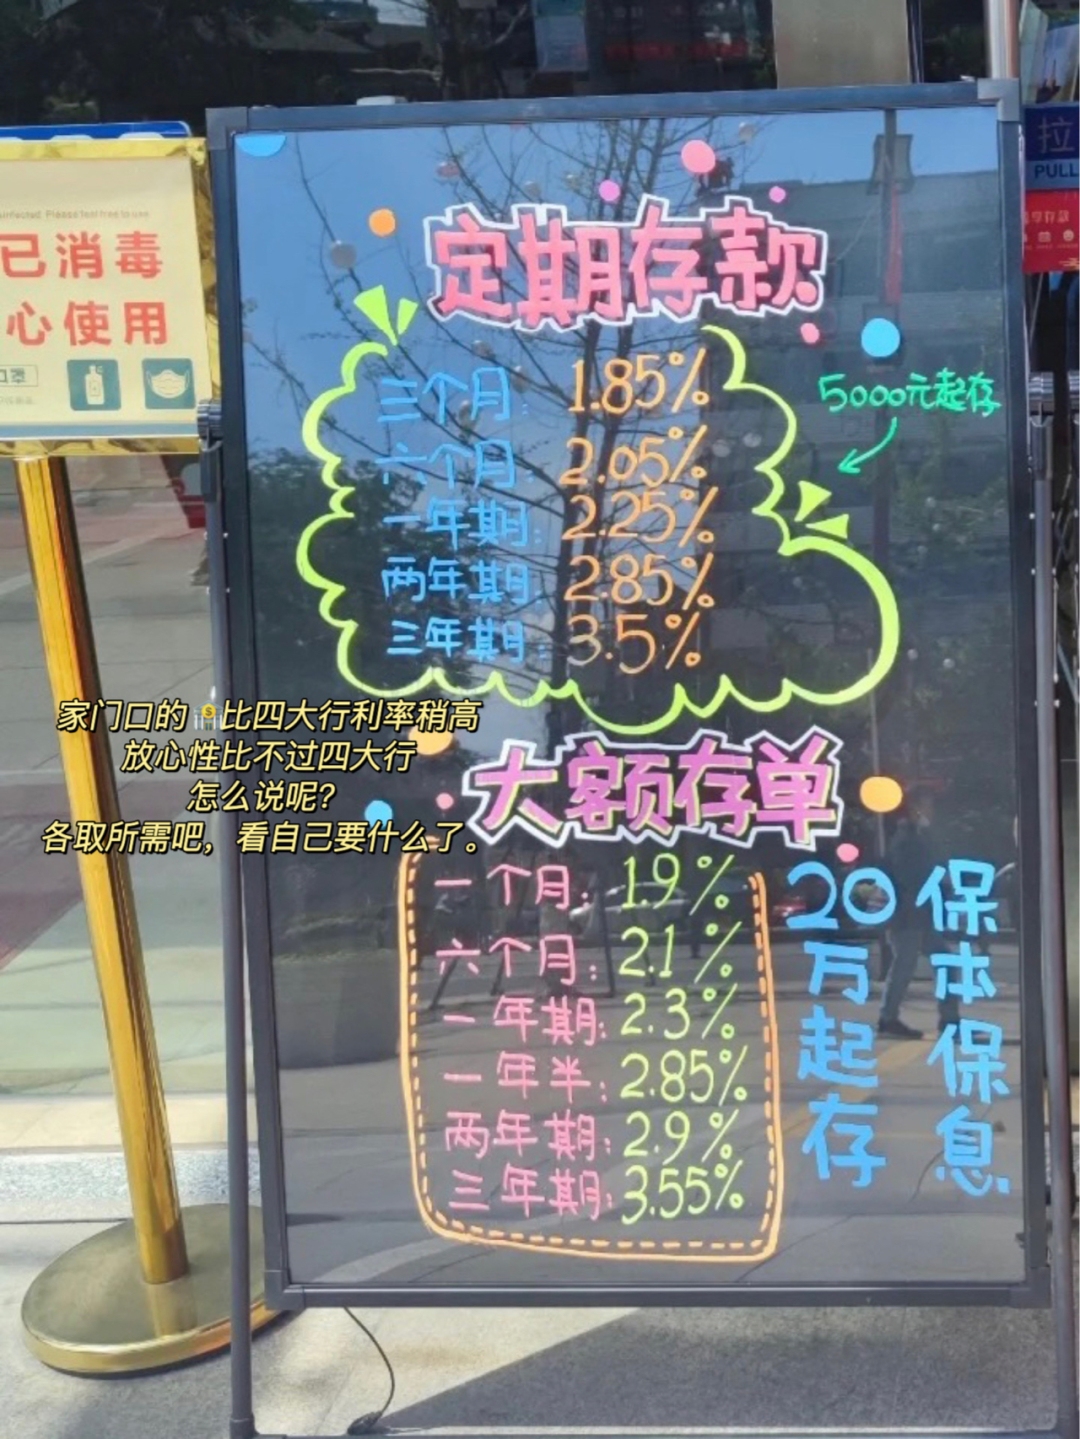 infected. Please feel free to use
已消毒
心使用
口罩
拉
PULL
享存款
定期存款
三个月：1.85%
六个月：2.05%
一年期：2.25%
两年期：2.85%
三年期：3.5%
5000元起存
家门口的
比四大行利率稍高
放心性比不过四大行
怎么说呢？
各取所需吧，看自己要什么了。
大额存单
一个月：1.9%
六个月：2.1%
一年期：2.3%
一年半：2.85%
两年期：2.9%
三年期：3.55%
20万起存
保本保息